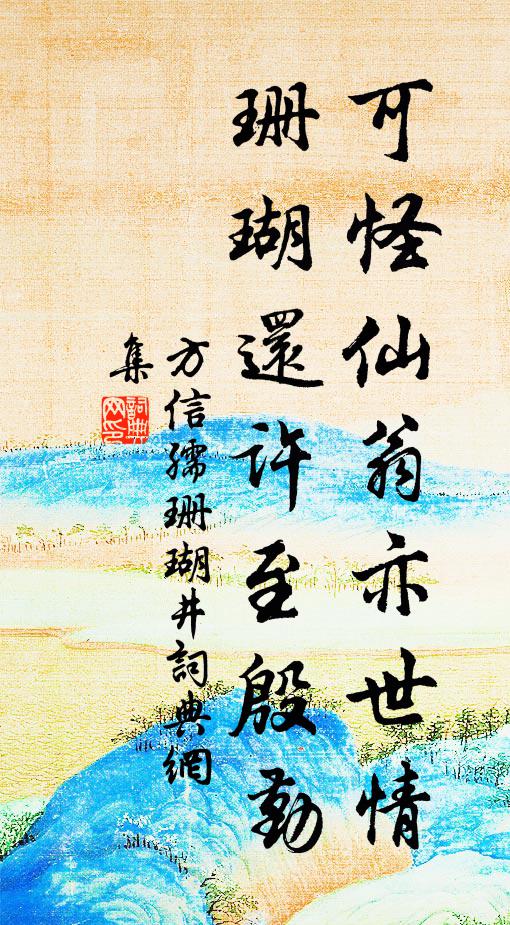 可怪仙翁亦世情
珊瑚還許至殷勤
方信孺珊瑚井詞典網
集
詞典網印